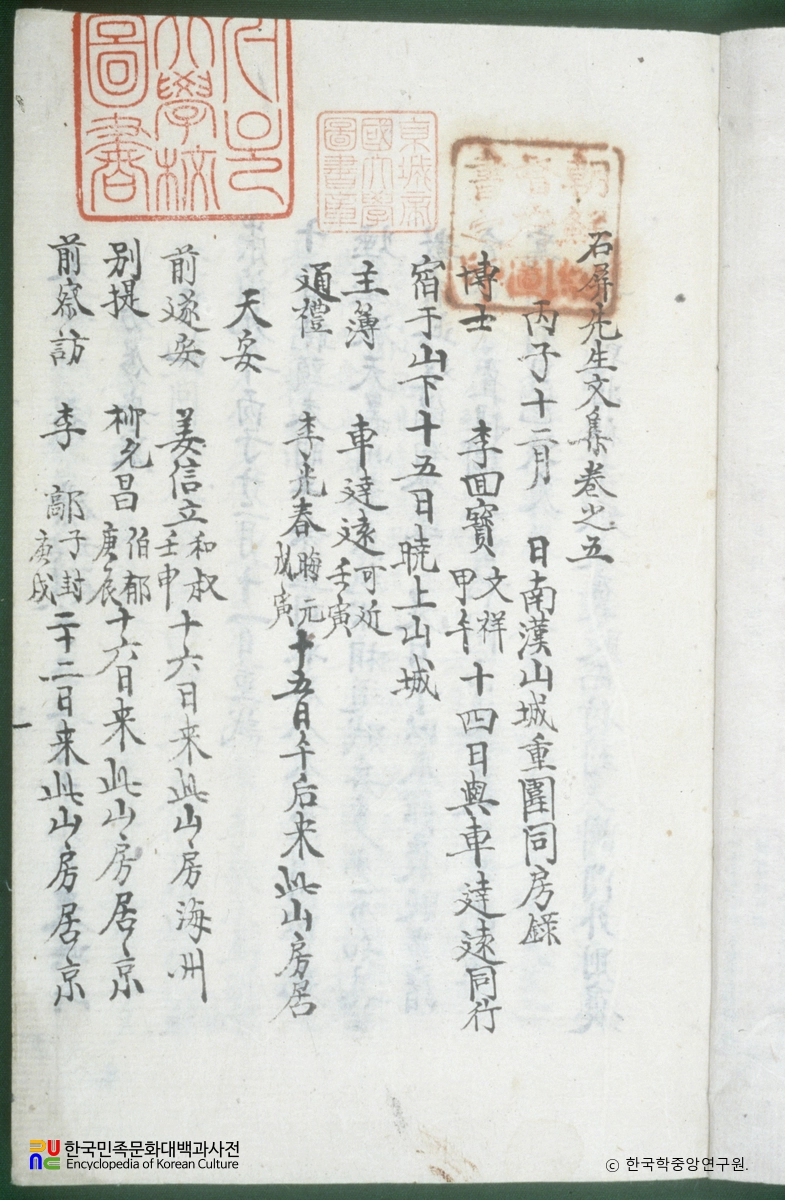 石屏先生文集卷之五
丙子十二月 日南漢山城重圍同房錄
博士 李回寶 文祥 甲午 十四日與車達遠同行
宿于山下十五日曉上山城
主簿 車達遠 可近 壬寅
通禮 李光春 晦元 戊寅 十五日午后来此山房居
天安
前遂安 姜信立 和叔 壬申 十六日来此山房海州
別提 柳允昌 伯郁 庚辰 十六日来此山房居京
前察訪 李 鄗 子封 庚戌 二十二日来此山房居京
京城帝
國大學
圖書章
大學校
圖書
朝鮮
圖
한국민족문화대백과사전
Encyclopedia of Korean Culture
ⓒ 한국학중앙연구원.